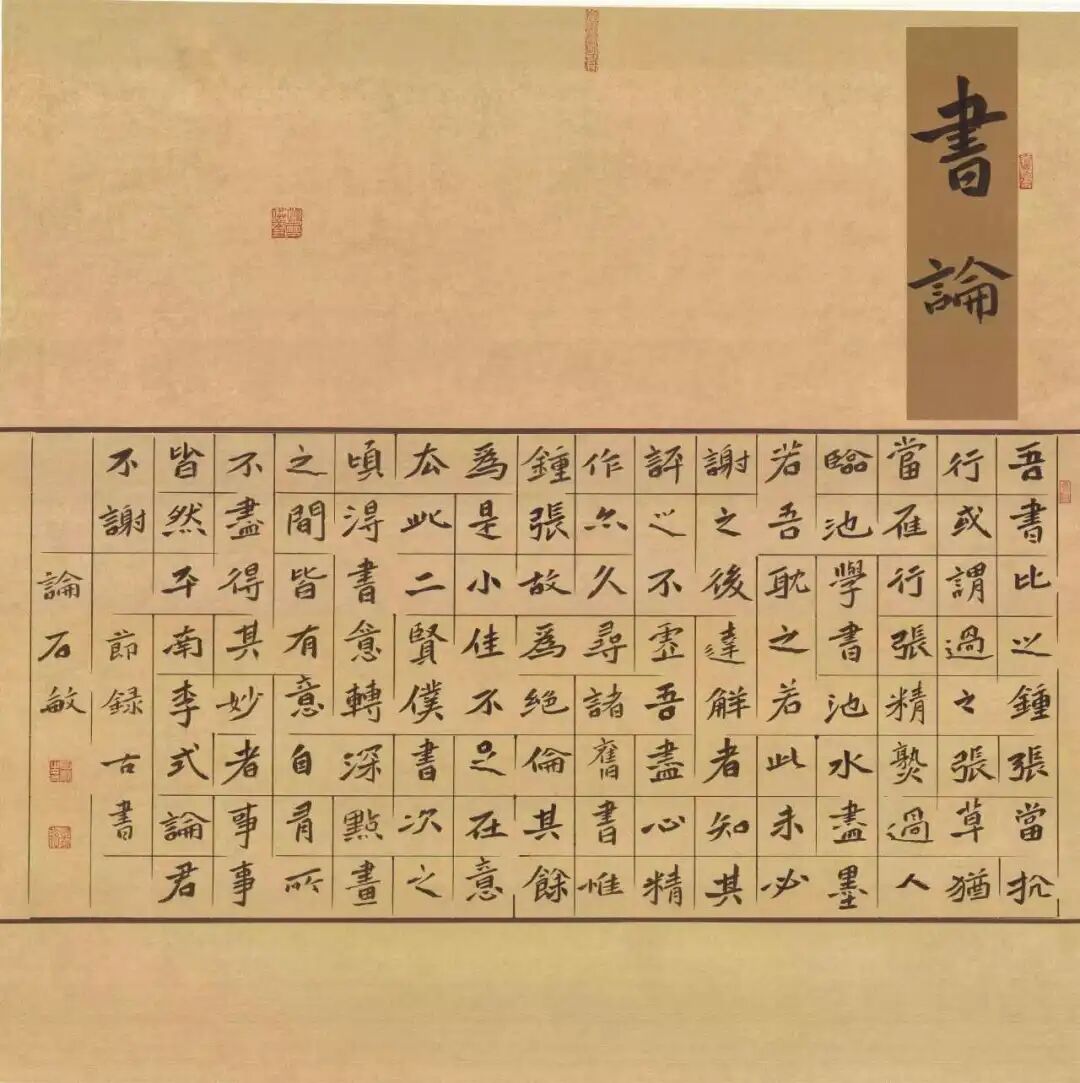 書論
吾書比之鍾張當抗
行或謂過之張草猶
當雁行張精熟過人
臨池學書池水盡墨
若吾耽之若此未必
謝之後達解者知其
評之不虛吾盡心精
作亦久尋諸舊書惟
鍾張故為絕倫其餘
為是小佳不足在意
去此二賢僕書次之
頃得書意轉深點畫
之間皆有意自有所
不盡得其妙者事事
皆然平南李式論君
不謝 節録古書
論石敏